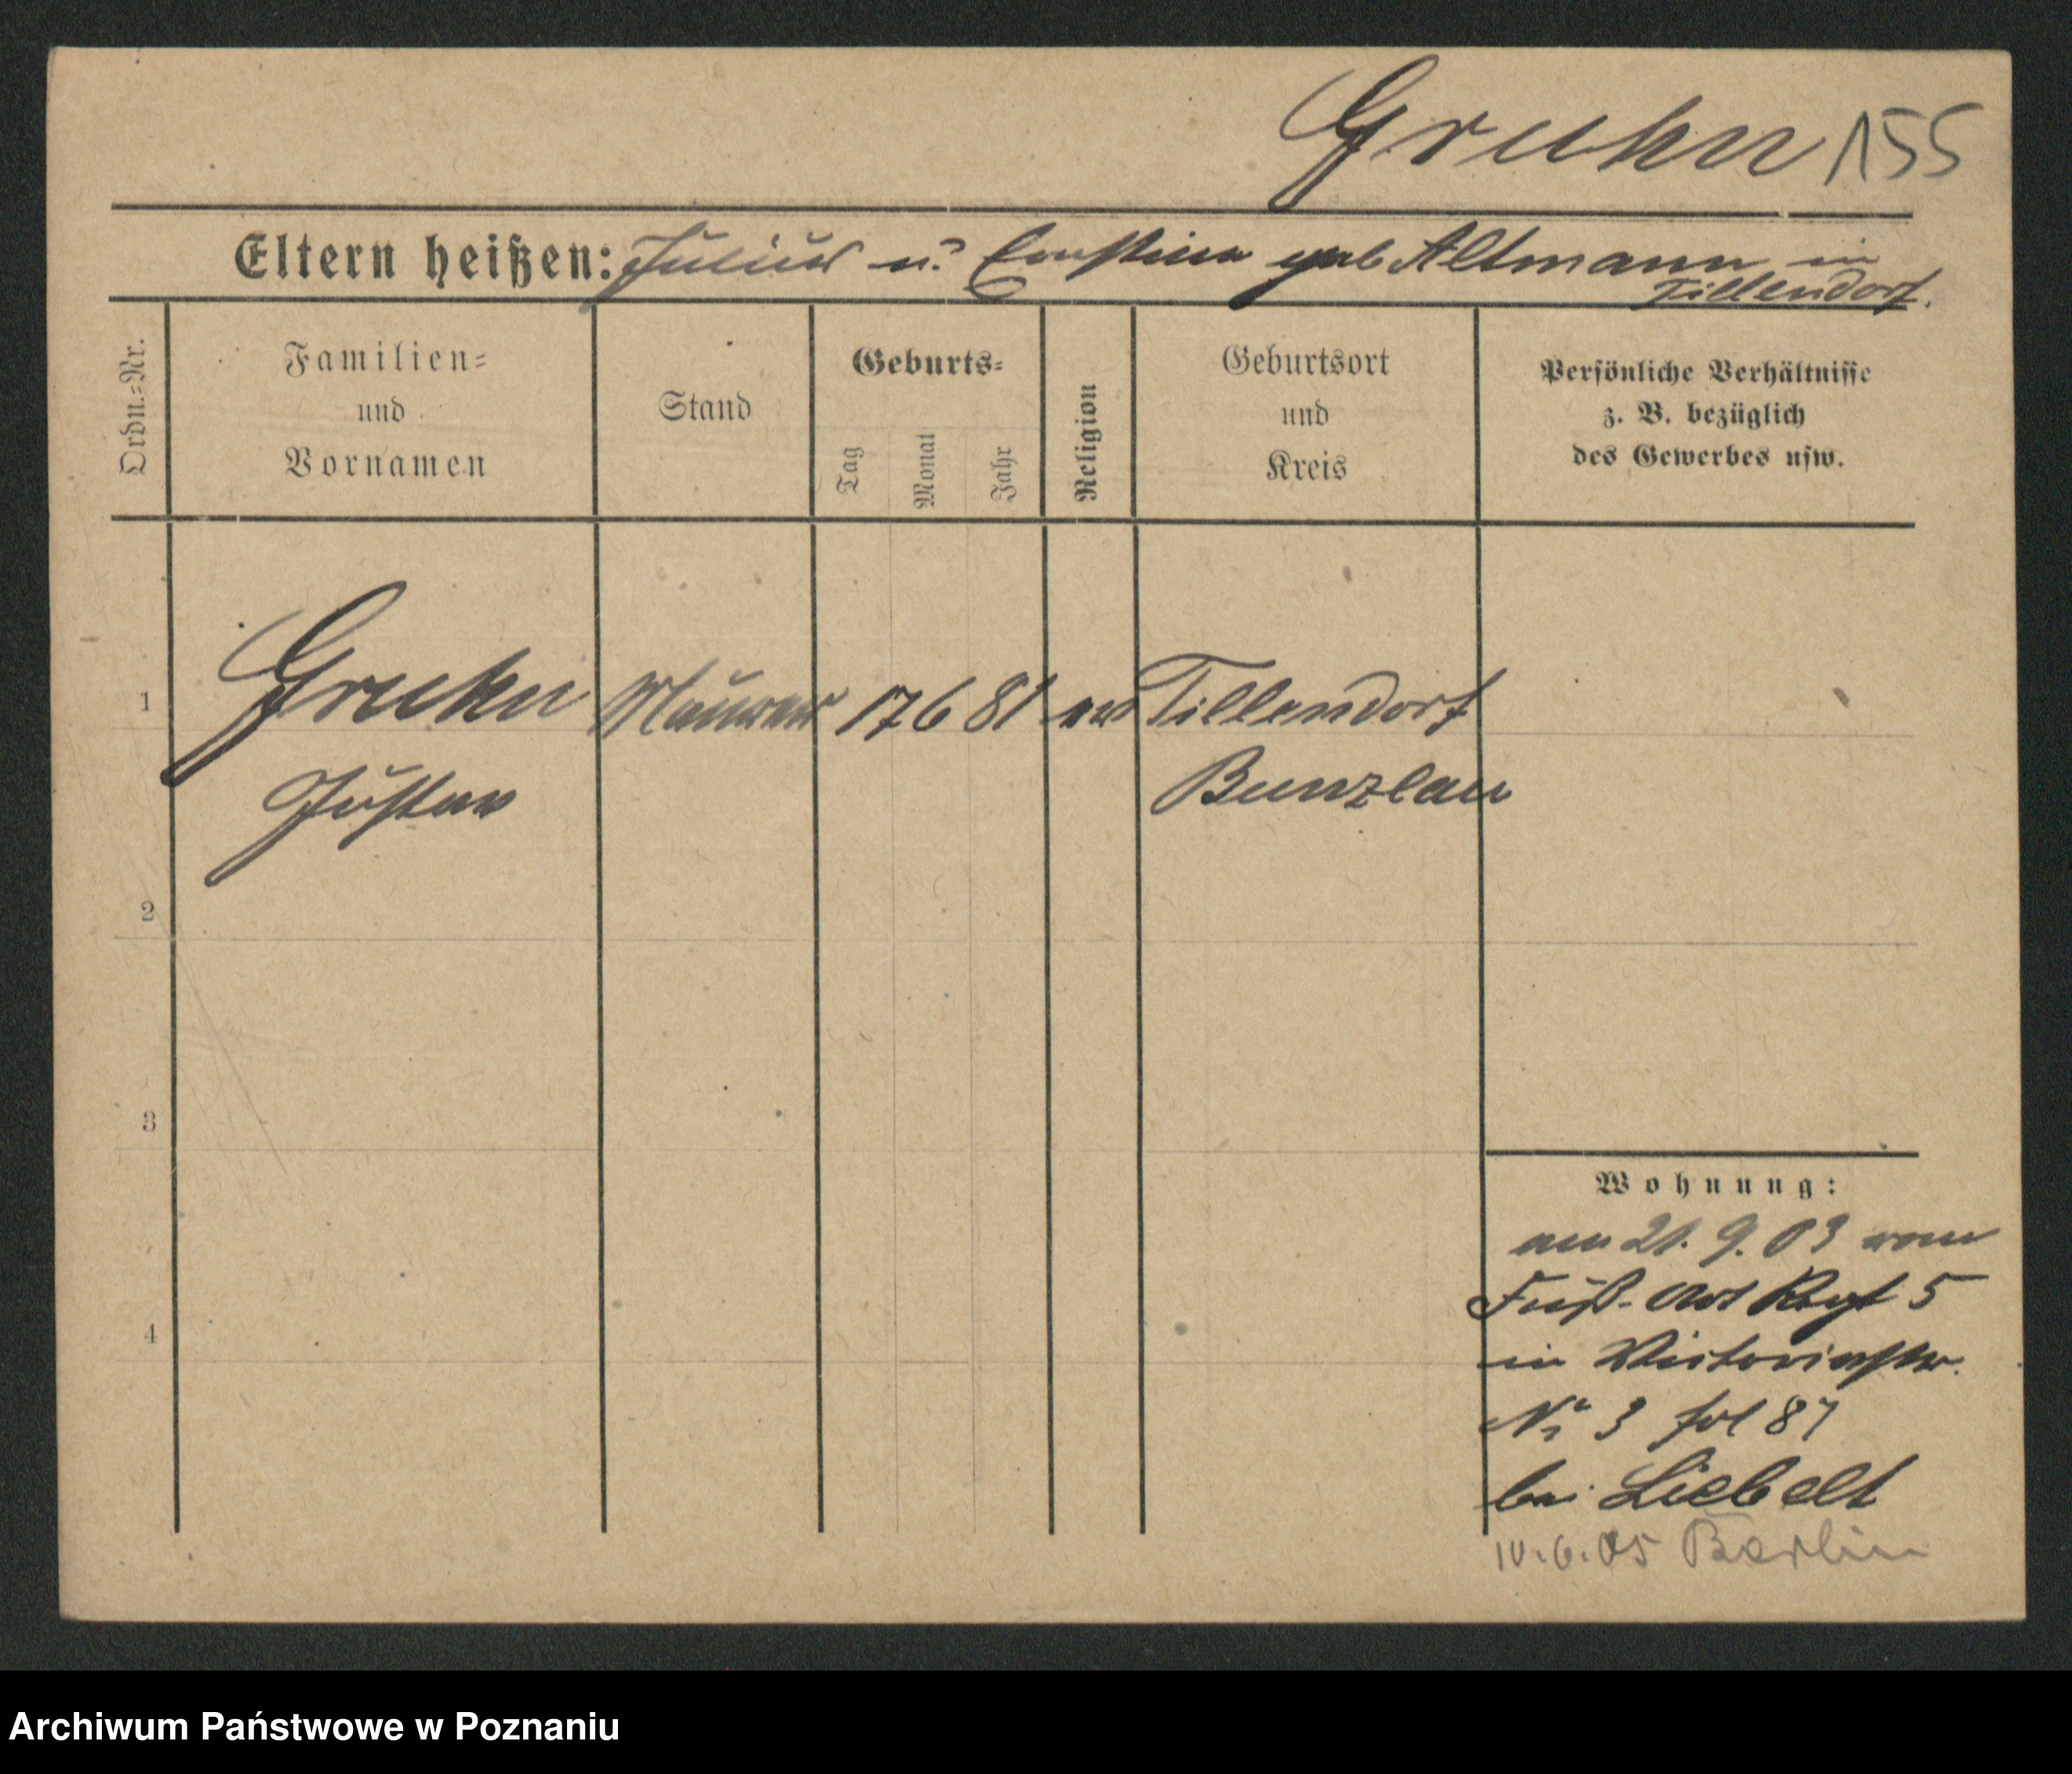 Gruhn 155
Eltern heißen: Julius u. Ernstine geb Altmann in
Tillendorf.
Ordn.=Nr.
Familien=
und
Vornamen
Stand
Geburts=
Tag
Monat
Jahr
Religion
Geburtsort
und
Kreis
Persönliche Verhältnisse
z. B. bezüglich
des Gewerbes usw.
1 Gruhn Maurer 17 6 81 ev Tillendorf
Gustav Bunzlau
2
3
4
Wohnung:
am 21. 9. 03 vom
Fuß-Art Regt 5
in Victoriastr.
No 3 fol 87
bei Liebelt
10.6.05 Berlin
Archiwum Państwowe w Poznaniu